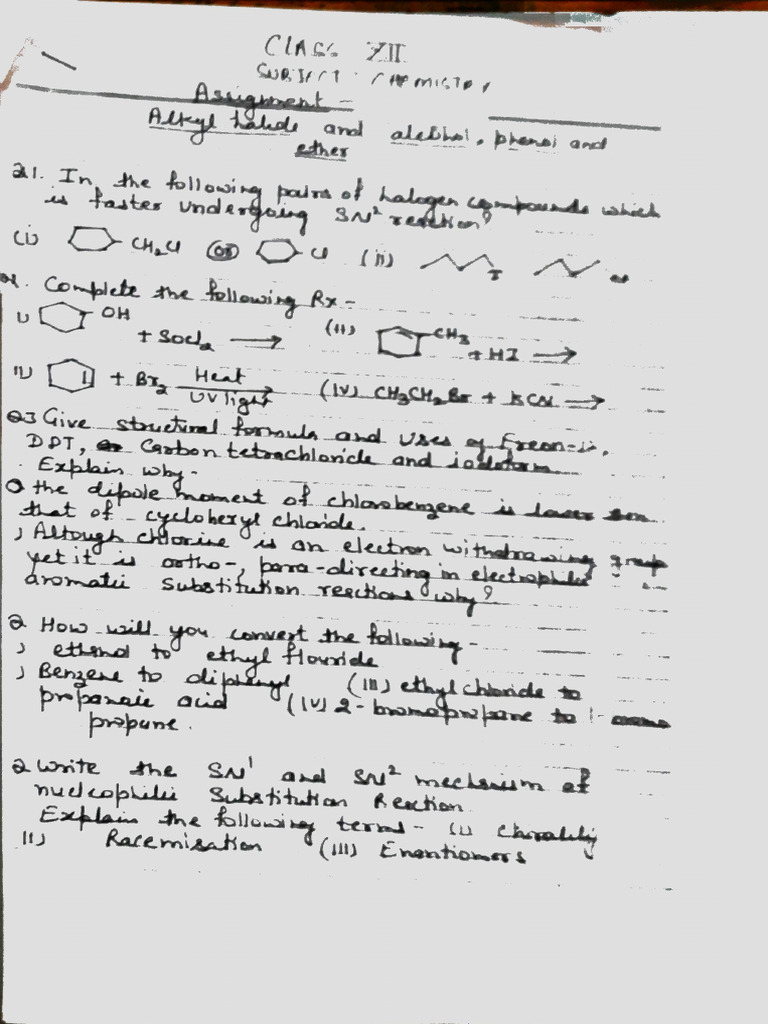 CLASS XII
SUBJECT : CHEMISTRY
Assigment -
Alkyl halide and alcohol, phenol and
ether
Q1. In the following pairs of halogen compounds which
is faster undergoing SN² reaction?
(i) CH₂Cl (or) Cl (ii) I Cl
Complete the following Rx -
i) OH + SOCl₂ → (ii) CH₃ + HI →
+ Br₂ Heat UV light (iv) CH₃CH₂Br + KCN →
Q3 Give structural formula and uses of Freon-12,
DDT, Carbon tetrachloride and iodoform
Explain why -
the dipole moment of chlorobenzene is lower
that of cyclohexyl chloride.
) Altough chlorine is an electron withdrawing group
yet it is ortho-, para-directing in electrophilic
aromatic substitution reactions why?
Q How will you convert the following -
) ethanol to ethyl flouride
) Benzene to diphenyl (iii) ethyl chloride to
propanoic acid (iv) 2-bromopropane to 1-bromo
propane.
Q Write the SN¹ and SN² mechanism of
nucleophilic Substitution Reaction
Explain the following terms - (i) Chorality
ii) Racemisation (iii) Enantiomers